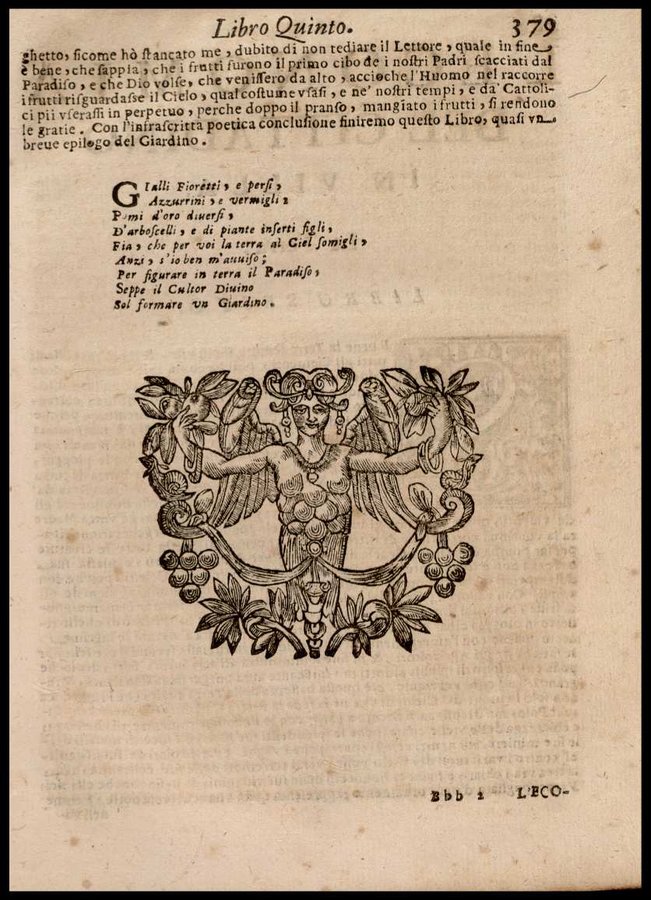 Libro Quinto. 379
ghetto, sicome hò stancato me, dubito di non tediare il Lettore, quale in fine
è bene, che sappia, che i frutti furono il primo cibo de i nostri Padri scacciati dal
Paradiso, e che Dio volse, che venissero da alto, accioche l'Huomo nel raccorre
i frutti risguardasse il Cielo, qual costume vsasi, e ne' nostri tempi, e da' Cattoli-
ci pii vserassi in perpetuo, perche doppo il pranso, mangiato i frutti, si rendono
le gratie. Con l'infrascritta poetica conclusione finiremo questo Libro, quasi vn
breue epilogo del Giardino.
GIalli Fioretti, e persi,
Azzurrini, e vermigli
Pomi d'oro diuersi,
D'arboscelli, e di piante inserti figli,
Fia, che per voi la terra al Ciel somigli,
Anzi, s'io ben m'auuiso;
Per figurare in terra il Paradiso,
Seppe il Cultor Diuino
Sol formare vn Giardino.
Bbb 2 L'ECO-